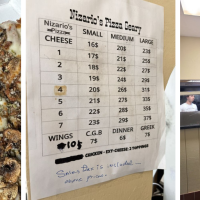 Nizario's Pizza Geary
Nizario's
Pizza
SMALL MEDIUM LARGE
CHEESE 16$ 20$ 23$
1 17$ 21$ 25$
2 18$ 22$ 27$
3 19$ 24$ 29$
4 20$ 26$ 31$
5 21$ 27$ 33$
6 22$ 28$ 35$
7 23$ 29$ 39$
WINGS C.G.B DINNER GREEK
10$ 7$ 6$
CHICKEN - EXT-CHEESE 2 TOPPINGS
Sales Tax is included